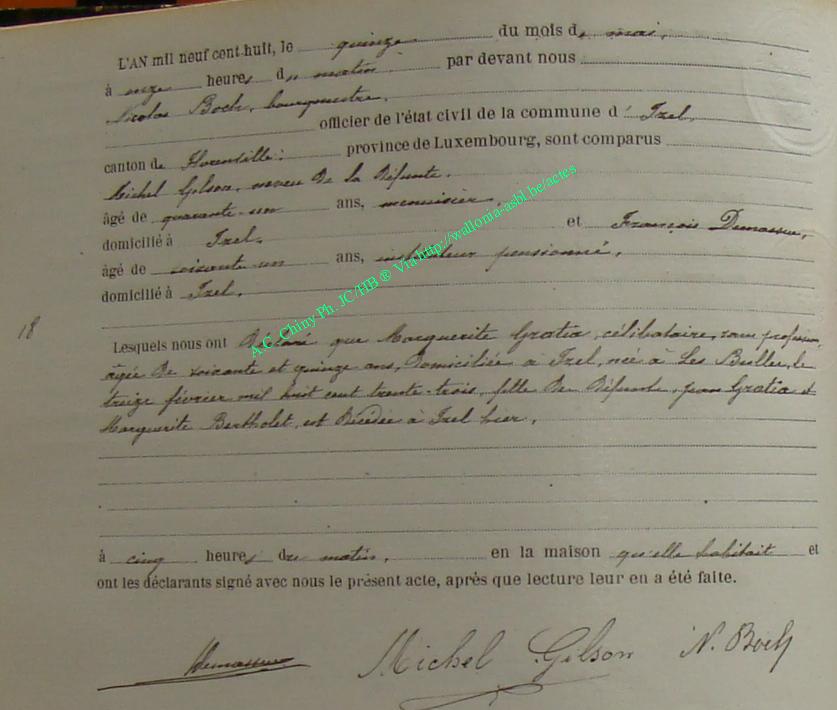 L'AN mil neuf cent huit, le quinze du mois de mai,
à onze heures du matin par devant nous
Nicolas Boch, bourgmestre,
officier de l'état civil de la commune d'Izel,
canton de Florenville: province de Luxembourg, sont comparus
Michel Gilson, neveu de la défunte,
âgé de quarante-un ans, menuisier,
domicilié à Izel, et François Demasue,
âgé de soixante-un ans, instituteur pensionné,
domicilié à Izel,
18
Lesquels nous ont déclaré que Marguerite Gratia, célibataire, sans profession,
âgée de soixante et quinze ans, domiciliée à Izel, née à Les Bulles, le
treize février mil huit cent trente-trois, fille de défunts Jean Gratia et
Marguerite Bertholet, est décédée à Izel hier,
à cinq heures du matin, en la maison qu'elle habitait et
ont les déclarants signé avec nous le présent acte, après que lecture leur en a été faite.
Michel Gilson N. Boch
A.C. Chiny Ph. JC/HB ® Via http://wallonia-asbl.be/actes